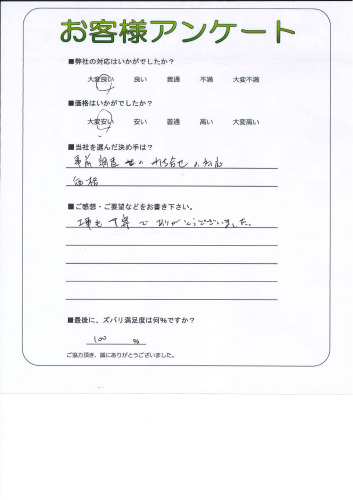 お客様アンケート
■弊社の対応はいかがでしたか?
大変良い 良い 普通 不満 大変不満
■価格はいかがでしたか?
大変安い 安い 普通 高い 大変高い
■当社を選んだ決め手は?
事前調査 合せ 対応
価格
■ご感想・ご要望などをお書き下さい。
工事も丁寧でありがとうございました。
■最後に、ズバリ満足度は何%ですか?
100 %
ご協力頂き、誠にありがとうございました。